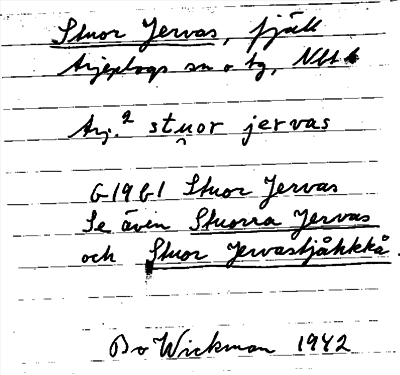 Stuor Jervas, fjäll
Arjeplogs sn o tg, Nbl
Arj.² stu̯or jervas
G 19 G1 Stuor Jervas
Se även Stuorra Jervas
och Stuor Jervastjåkkkå.
Bo Wickman 1942